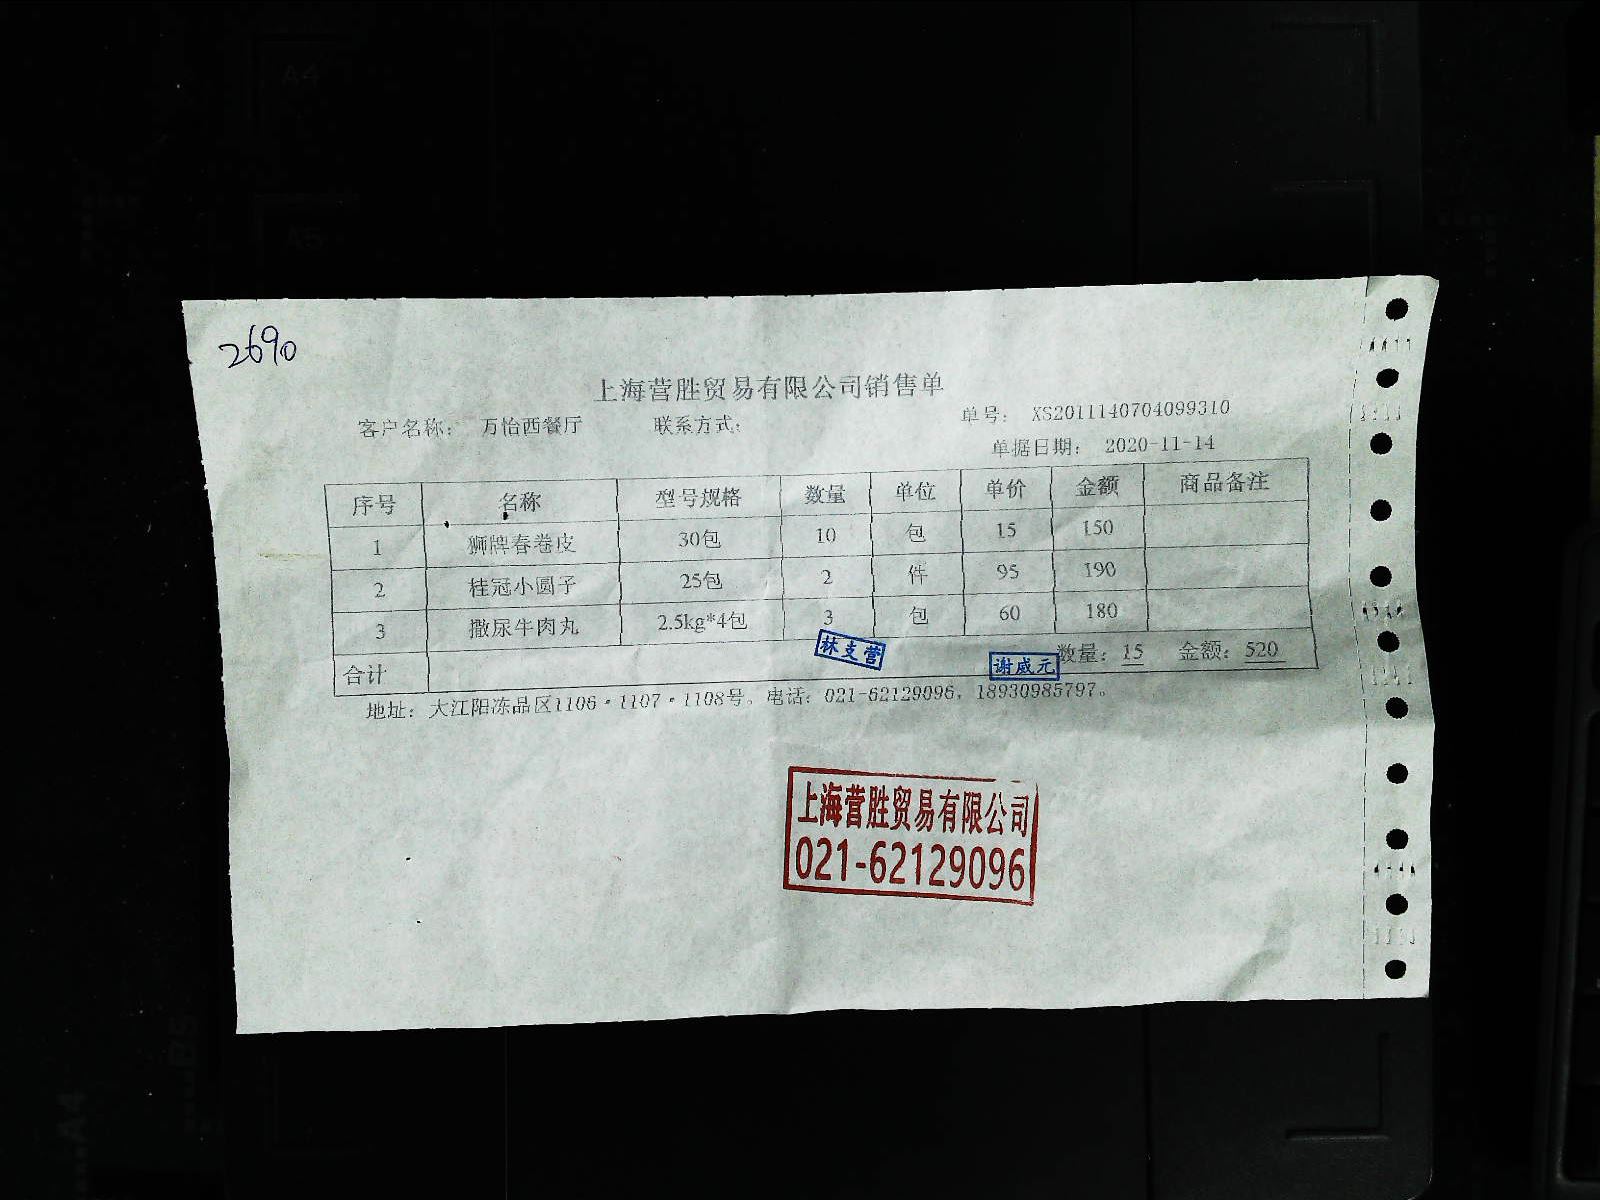 2690
上海营胜贸易有限公司销售单
客户名称： 万怡西餐厅 联系方式： 单号： XS2011140704099310
单据日期： 2020-11-14
序号 名称 型号规格 数量 单位 单价 金额 商品备注
1 狮牌春卷皮 30包 10 包 15 150
2 桂冠小圆子 25包 2 件 95 190
3 撒尿牛肉丸 2.5kg*4包 3 包 60 180
合计 数量：15 金额：520
林支营
谢威元
地址： 大江阳冻品区1106·1107·1108号。电话：021-62129096，18930985797。
上海营胜贸易有限公司
021-62129096
A4
A5
B5
A4